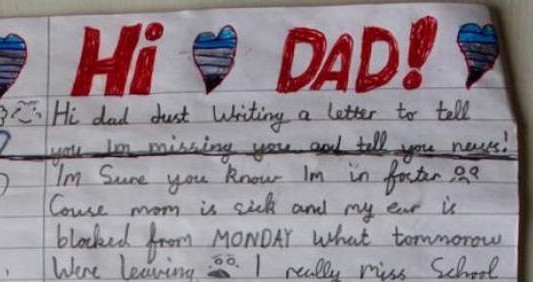 Hi DAD!
Hi dad Just Writing a letter to tell
you Im missing you and tell you news!
Im Sure you know Im in foster
Couse mom is sick and my ear is
blocked from MONDAY What tommorow
Were leaving I really miss School